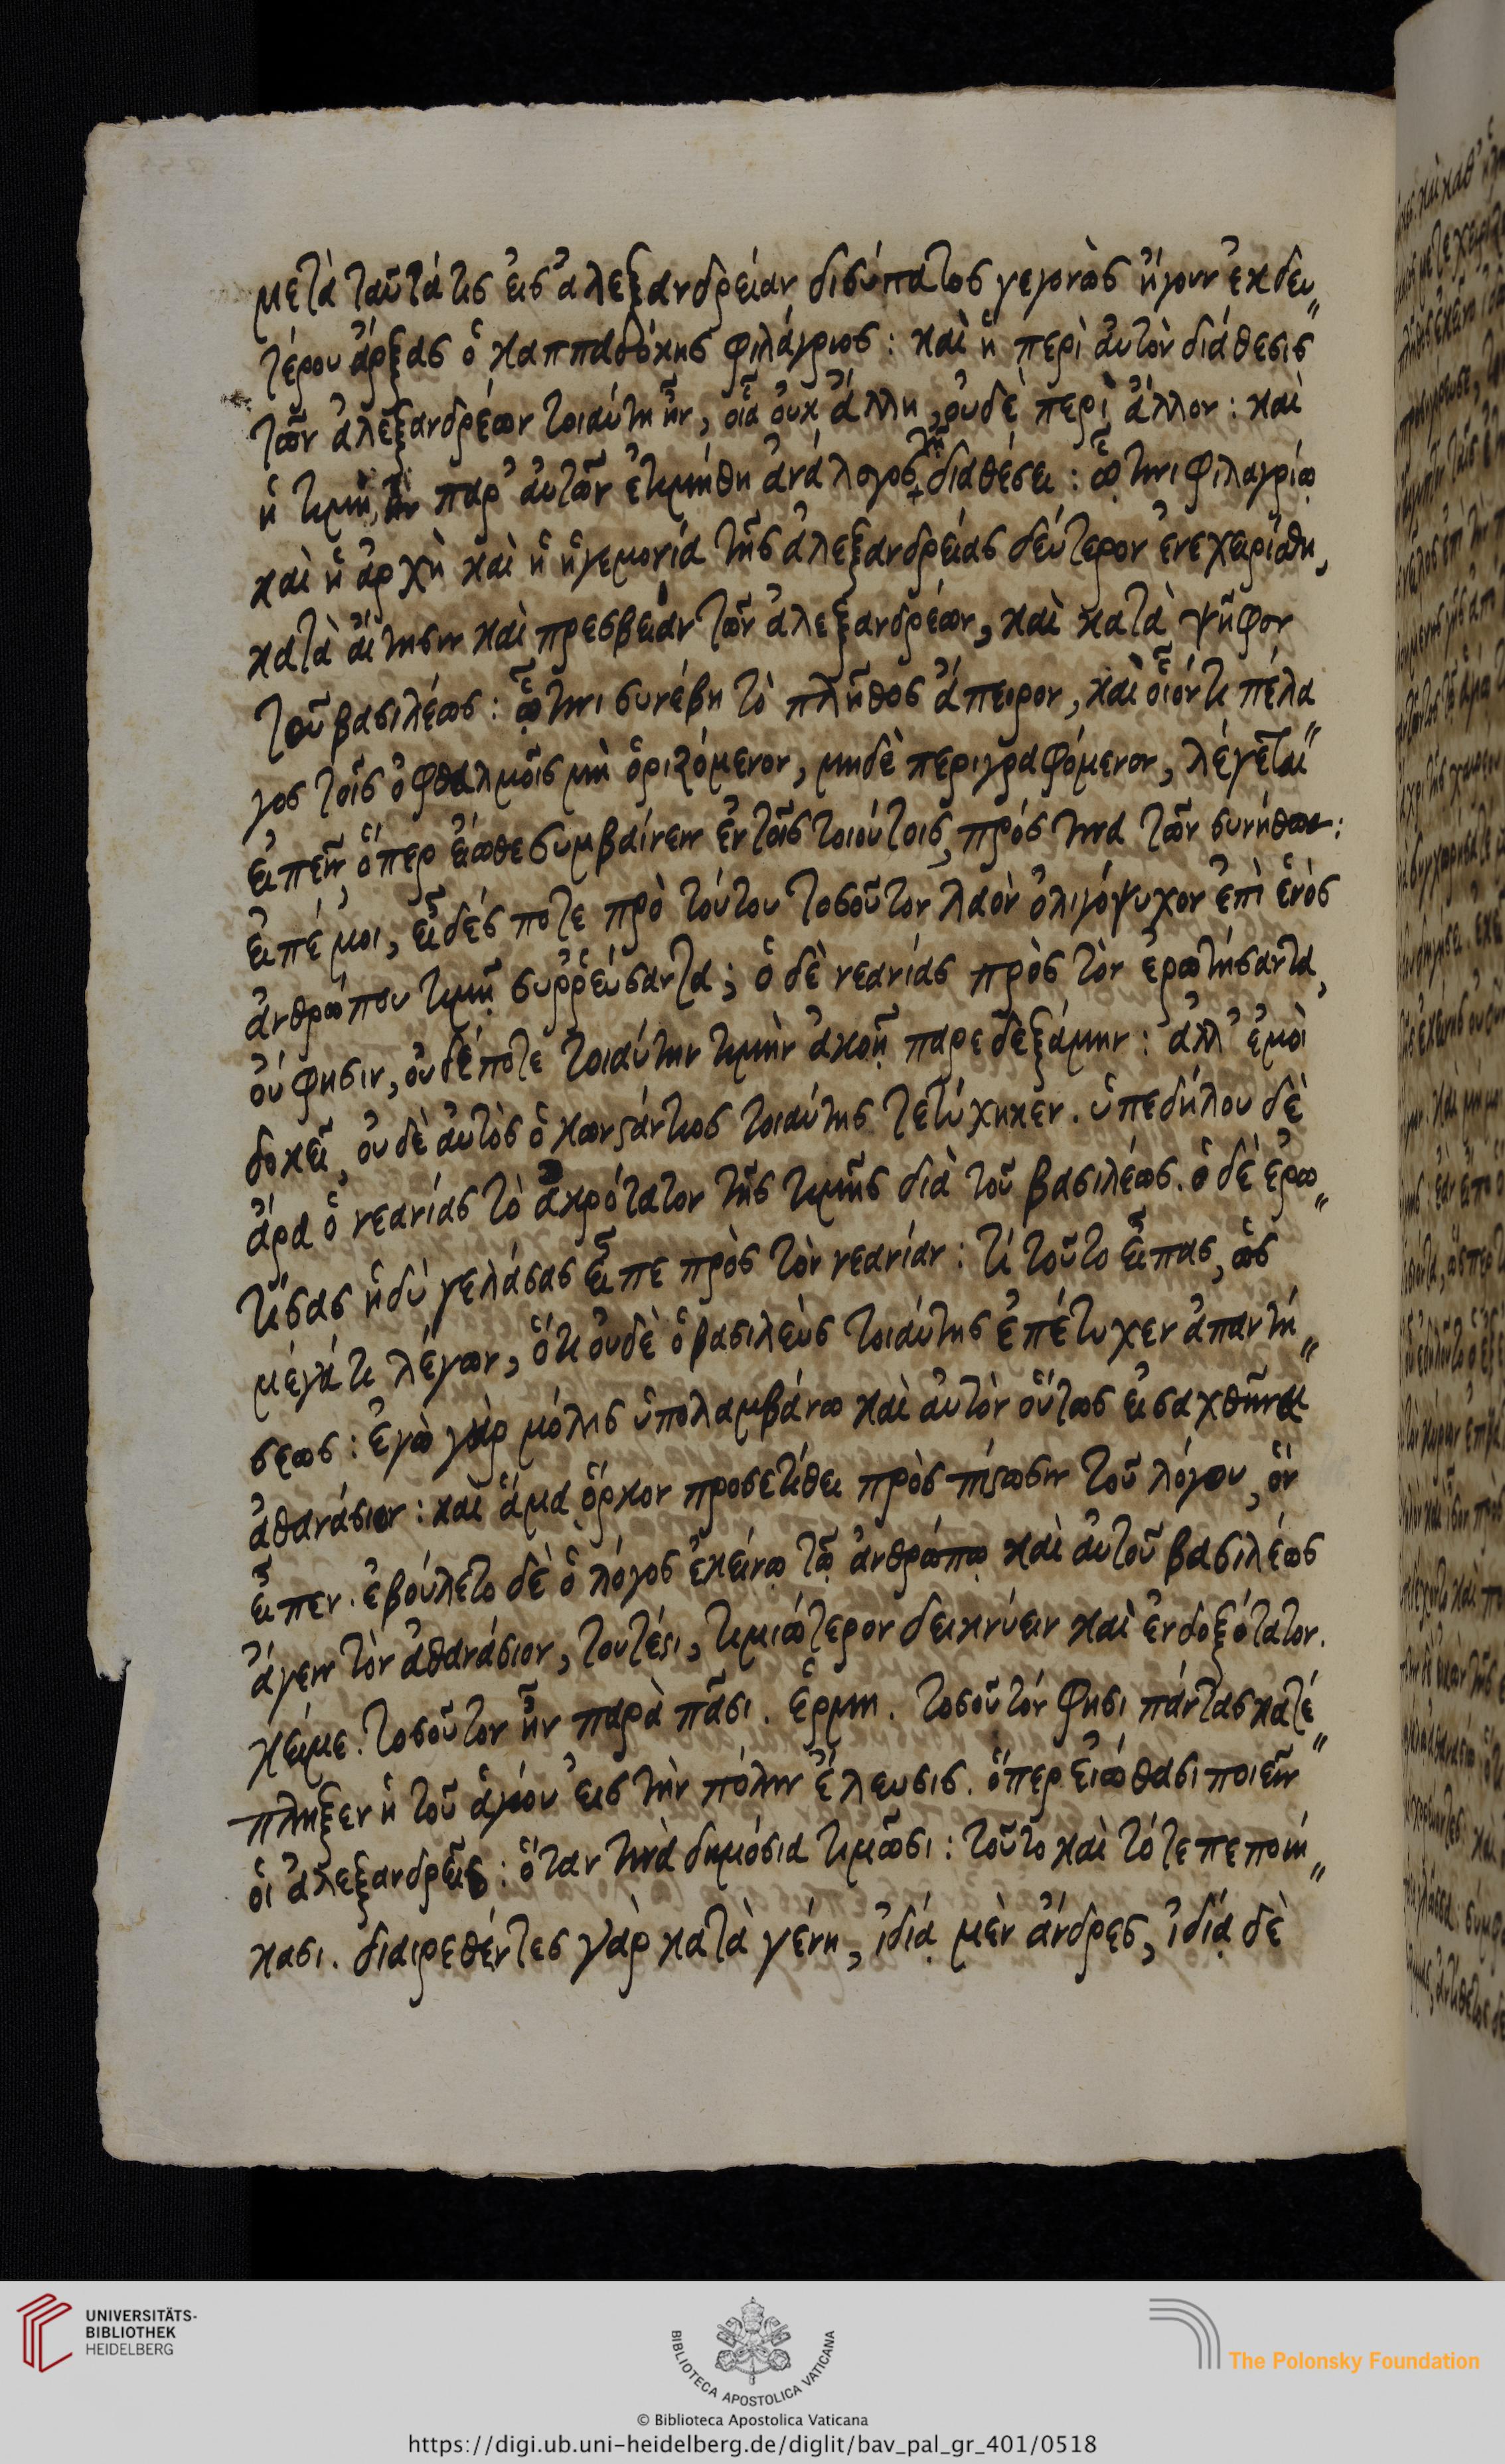 μετὰ ταῦτά τις εἰς ἀλεξανδρείαν δισύπατος γεγονὼς ἤγουν ἐκ δευ〃
τέρου ἄρξας ὁ καππαδόκης φιλάγριος : καὶ ἡ περὶ αὐτὸν διάθεσις
τῶν ἀλεξανδρέων τοιαύτη ἦν, οἵα οὐκ ἄλλη, οὐδὲ περὶ ἄλλον : καὶ
ἡ τιμὴ, ἣν παρ' αὐτῶν ἐτιμήθη ἀνάλογος τῆ διαθέσει : ᾧτινι φιλαγρίῳ
καὶ ἡ ἀρχὴ καὶ ἡ ἡγεμονία τῆς ἀλεξανδρείας δεύτερον ἐνεχειρίσθη,
κατὰ αἴτησιν καὶ πρεσβείαν τῶν ἀλεξανδρέων, καὶ κατὰ ψῆφον
τοῦ βασιλέως : ᾧτινι συνέβη τὸ πλῆθος ἄπειρον, καὶ οἷόν τι πέλα〃
γος τοῖς ὀφθαλμοῖς μὴ ὁριζόμενον, μηδὲ περιγραφόμενον, λέγεται
εἰπεῖν, ὅπερ εἴωθε συμβαίνειν ἐν τοῖς τοιούτοις, πρός τινα τῶν συνήθων :
εἰπέ μοι, εἶδές ποτε πρὸ τούτου τοσοῦτον λαὸν ὀλιγόψυχον ἐπὶ ἑνὸς
ἀνθρώπου τιμῇ συῤῥεύσαντα ; ὁ δὲ νεανίας πρὸς τὸν ἐρωτήσαντα,
οὔ φησιν, οὐδέποτε τοιαύτην τιμὴν ἀκοῇ παρεδεξάμην : ἀλλ' ἐμοὶ
δοκεῖ, οὐδὲ αὐτὸς ὁ κωνστάντιος τοιαύτης τετύχηκεν. ὑπεδήλου δὲ
ἄρα ὁ νεανίας τὸ ἀκρότατον τῆς τιμῆς διὰ τοῦ βασιλέως. ὁ δὲ ἐρω〃
τήσας ἡδὺ γελάσας εἶπε πρὸς τὸν νεανίαν : τί τοῦτο εἶπας, ὡς
μέγά τι λέγων, ὅτι οὐδὲ ὁ βασιλεὺς τοιαύτης ἐπέτυχεν ἀπαντή〃
σεως : ἐγὼ γὰρ μόλις ὑπολαμβάνω καὶ αὐτὸν οὕτως εἰσαχθῆναι
ἀθανάσιον : καὶ ἅμα ὅρκον προσετίθει πρὸς πίστωσιν τοῦ λόγου, ὃν
εἶπεν. ἐβούλετο δὲ ὁ λόγος ἐκείνῳ τῷ ἀνθρώπῳ καὶ αὐτοῦ βασιλέως
ἄγειν τὸν ἀθανάσιον, τουτέστι, τιμιώτερον δεικνύειν καὶ ἐνδοξότατον.
κείμε. τοσοῦτον ἦν παρὰ πᾶσι. ἑρμη. τοσοῦτόν φησι πάντας κατέ〃
πληξεν ἡ τοῦ ἁγίου εἰς τὴν πόλιν ἔλευσις. ὅπερ εἰώθασι ποιεῖν
οἱ ἀλεξανδρεῖς : ὅταν τινὰ δημόσια τιμῶσι : τοῦτο καὶ τότε πεποιή〃
κασι. διαιρεθέντες γὰρ κατὰ γένη, ἰδίᾳ μὲν ἄνδρες, ἰδίᾳ δὲ
UNIVERSITÄTS-
BIBLIOTHEK
HEIDELBERG
BIBLIOTECA APOSTOLICA VATICANA
The Polonsky Foundation
© Biblioteca Apostolica Vaticana
https://digi.ub.uni-heidelberg.de/diglit/bav_pal_gr_401/0518